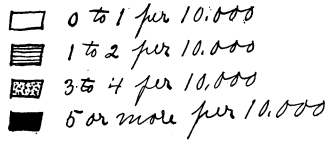 0 to 1 per 10.000
1 to 2 per 10.000
3 to 4 per 10,000
5 or more per 10.000